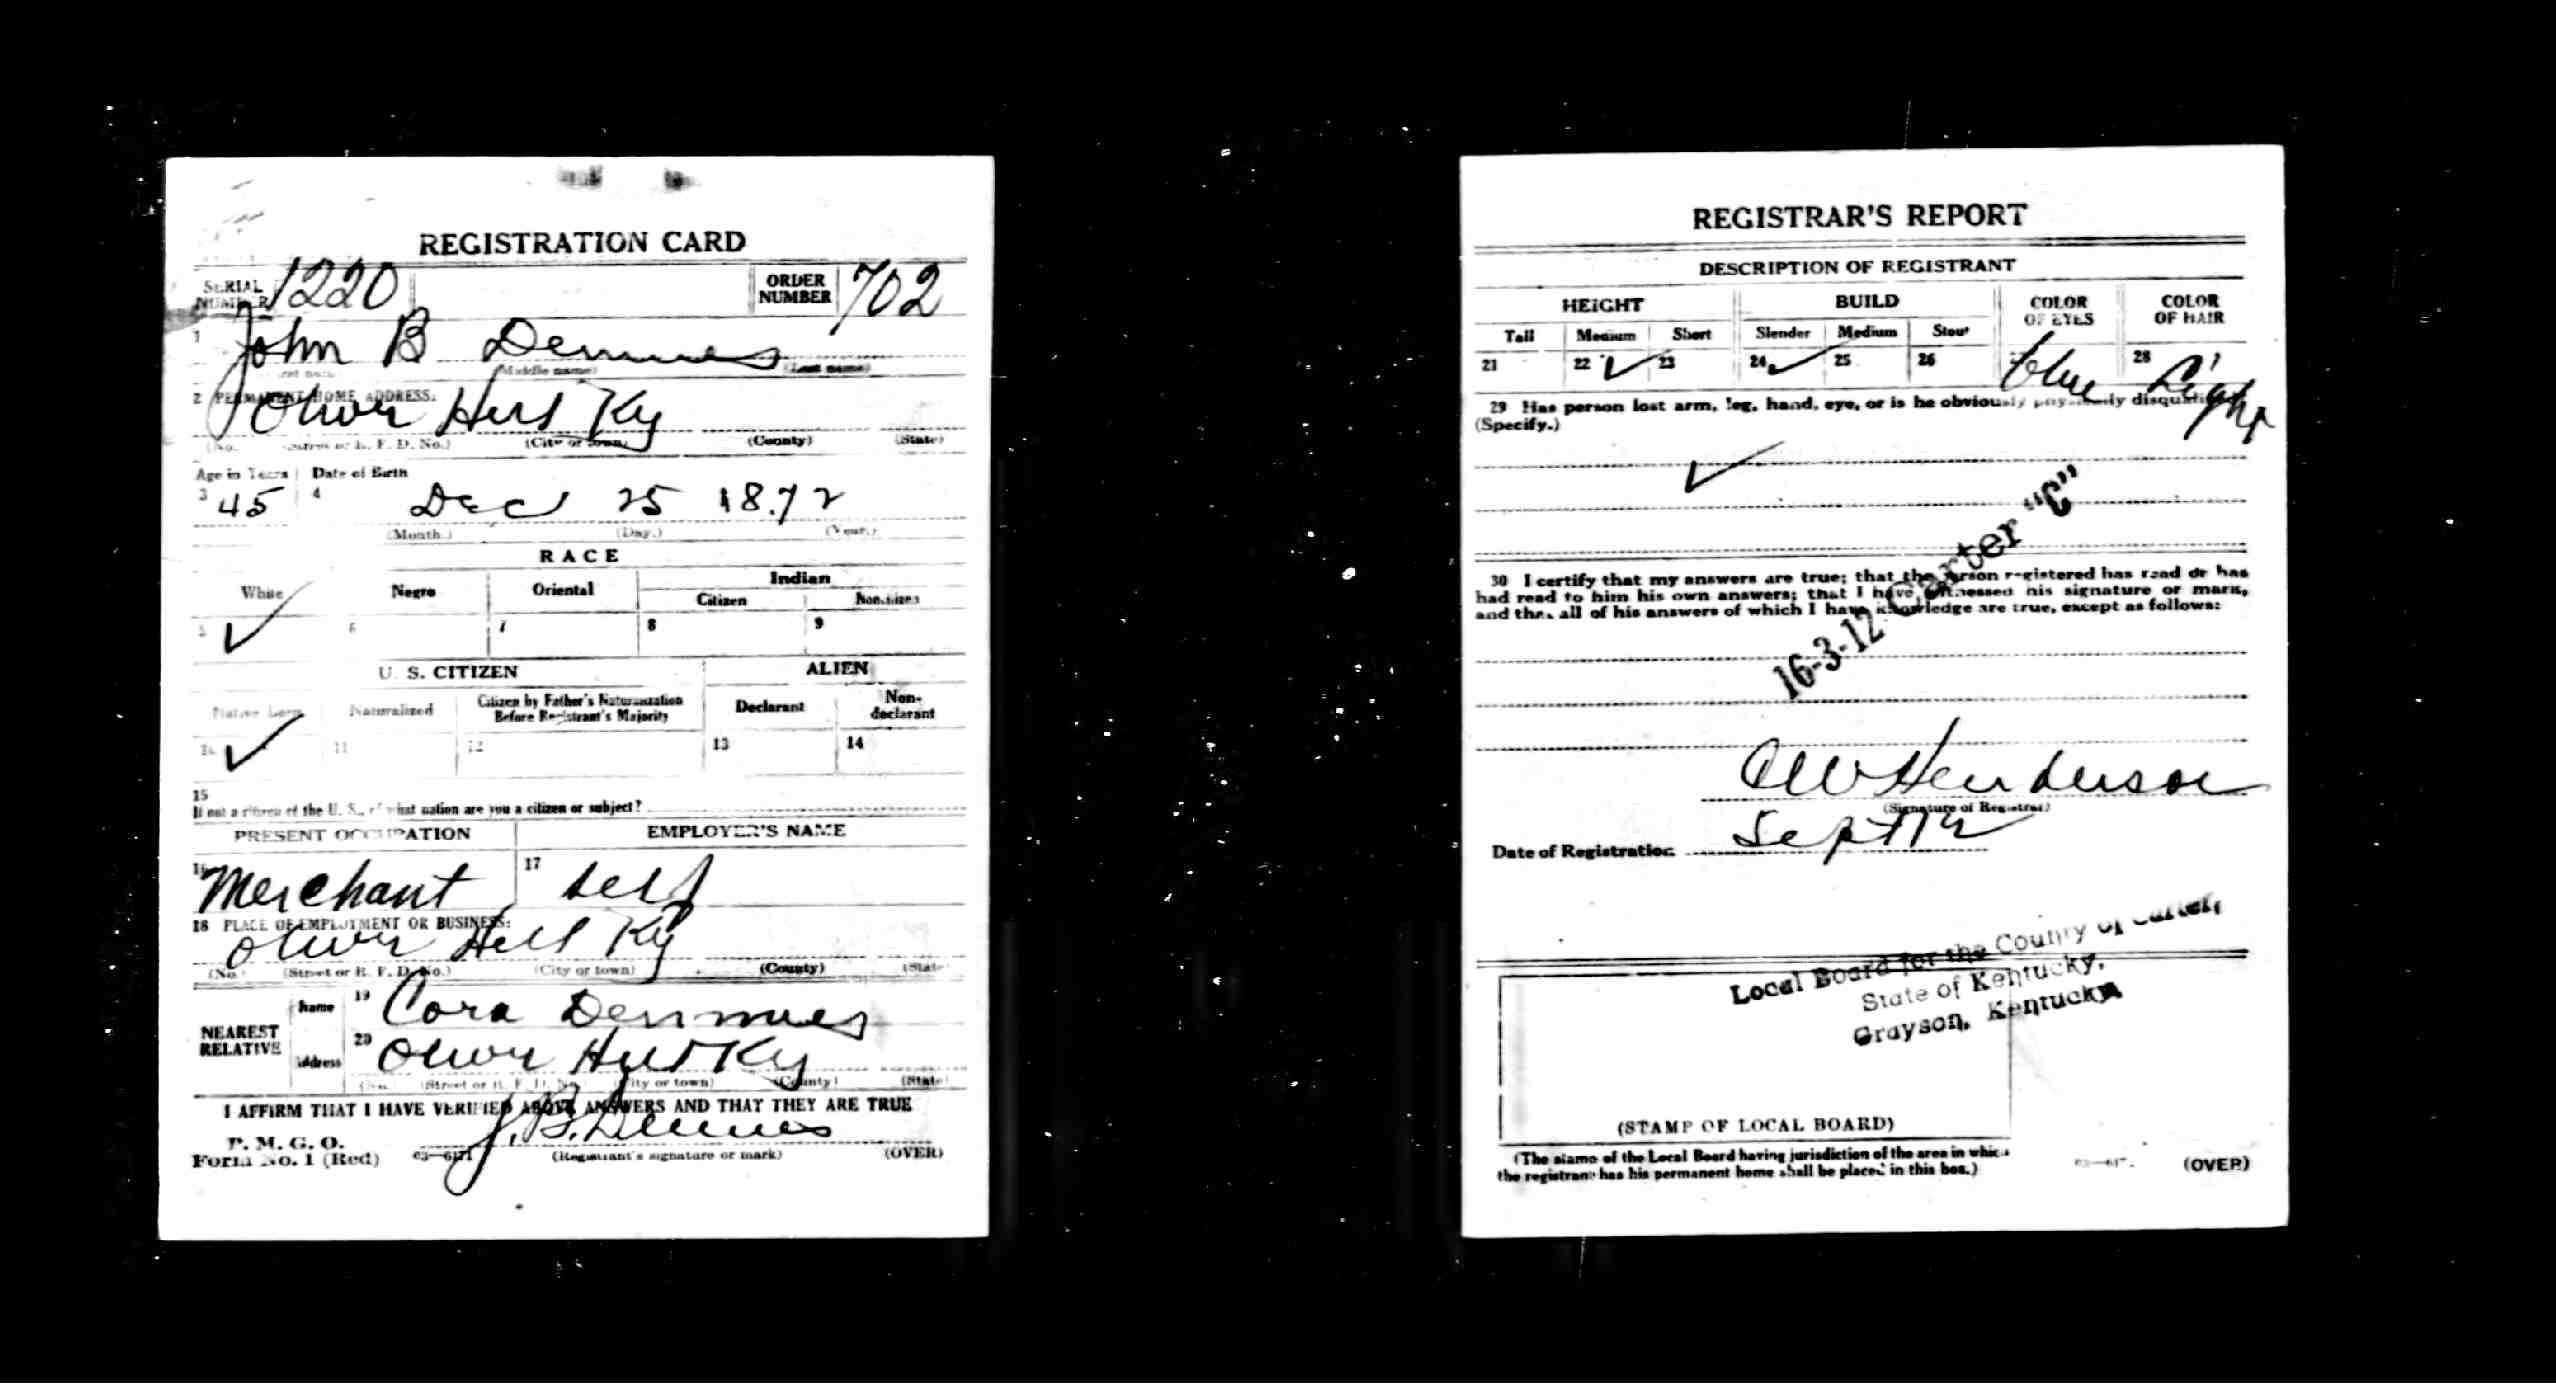 REGISTRATION CARD
SERIAL NUMBER 1220 ORDER NUMBER 702
1 John B Dennues
(Middle name) (Last name)
2 PERMANENT HOME ADDRESS:
Oliver Hill Ky
(No.) (Street or R. F. D. No.) (City or town) (County) (State)
Age in Years Date of Birth
3 45 4 Dec 25 1872
(Month.) (Day.) (Year.)
RACE
White Negro Oriental Indian
Citizen Noncitizen
5 ✓ 6 7 8 9
U. S. CITIZEN ALIEN
Native Born Naturalized Citizen by Father's Naturalization Before Registrant's Majority Declarant Non-declarant
10 ✓ 11 12 13 14
15
If not a citizen of the U. S., of what nation are you a citizen or subject?
PRESENT OCCUPATION EMPLOYER'S NAME
16 Merchant 17 self
18 PLACE OF EMPLOYMENT OR BUSINESS:
Oliver Hill Ky
(No.) (Street or R. F. D. No.) (City or town) (County) (State)
NEAREST RELATIVE Name 19 Cora Dennues
Address 20 Oliver Hill Ky
(No.) (Street or R. F. D. No.) (City or town) (County) (State)
I AFFIRM THAT I HAVE VERIFIED ABOVE ANSWERS AND THAT THEY ARE TRUE
P. M. G. O.
Form No. 1 (Red) 03—6171 J. B. Dennues
(Registrant's signature or mark) (OVER)
REGISTRAR'S REPORT
DESCRIPTION OF REGISTRANT
HEIGHT BUILD COLOR OF EYES COLOR OF HAIR
Tall Medium Short Slender Medium Stout
21 22 ✓ 23 24 ✓ 25 26 blue 28 Light
29 Has person lost arm, leg, hand, eye, or is he obviously physically disqualified?
(Specify.)
✓
16-3-12 Carter "C"
30 I certify that my answers are true; that the person registered has read or has
had read to him his own answers; that I have witnessed his signature or mark,
and that all of his answers of which I have knowledge are true, except as follows:
Henderson
(Signature of Registrar)
Date of Registration Sept 12
Local Board for the County of Carter,
State of Kentucky,
Grayson, Kentucky
(STAMP OF LOCAL BOARD)
(The stamp of the Local Board having jurisdiction of the area in which
the registrant has his permanent home shall be placed in this box.)
(OVER)